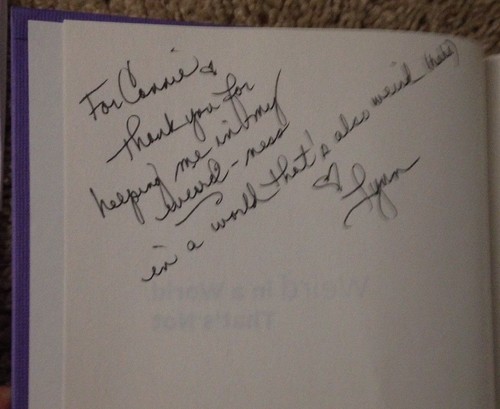 For Connie ♡
thank you for
helping me in my
weird-ness
in a world that's also weird
♡ Lynn
Weird in a World
That's Not